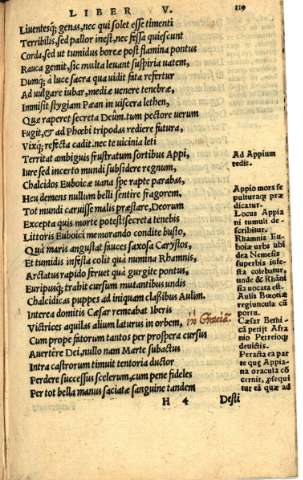 LIBER V. 119
Liuentesq; genas, nec qui solet esse timenti
Terribilis, sed pallor inest, nec fessa quiescunt
Corda, sed ut tumidus boreæ post flamina pontus
Rauca gemit, sic multa leuant suspiria uatem,
Dumq; a luce sacra qua uidit fata refertur
Ad uulgare iubar, mediæ uenere tenebræ,
Immisit stygiam Pæan in uiscera lethen,
Quæ raperet secreta Deum. tum pectore uerum
Fugit, & ad Phœbi tripodas rediere futura,
Vixq; refecta cadit. nec te uicinia leti
Territat ambiguis frustratum sortibus Appi,
Iure sed incerto mundi subsidere regnum,
Chalcidos Euboicæ uana spe rapte parabas,
Heu demens nullum belli sentire fragorem,
Tot mundi caruisse malis præstare, Deorum
Excepta quis morte potest? secreta tenebis
Littoris Euboici memorando condite busto,
Qua maris angustat fauces saxosa Carystos,
Et tumidis infesta colit qua numina Rhamnis,
Arctatus rapido feruet qua gurgite pontus,
Euripusq; trahit cursum mutantibus undis
Chalcidicas puppes ad iniquam classibus Aulim.
Interea domitis Cæsar remeabat Iberis
Victrices aquilas alium laturus in orbem,
in Græciā.
Cum prope fatorum tantos per prospera cursus
Auertere Dei, nullo nam Marte subactus
Intra castrorum timuit tentoria ductor
Perdere successus scelerum, cum pene fideles
Per tot bella manus saciatæ sanguine tandem
H 4 Desti
Ad Appium
redit.
Appio mors se
pulturaq; præ
dicatur.
Locus Appia
ni tumuli de-
scribitur.
Rhamnis Eu-
boiæ urbs ubi
dea Nemesis
superbis infe
sta colebatur,
unde & Rhām
sia uocata est.
Aulis Bœotiæ
regiuncula cū
portu.
Cæsar Bethi-
cā petijt Afra
nio Petreioq;
deuictis.
Peracta ea par
te quæ Appia-
na oracula cō
cernit, psequi
tur ea quæ ad